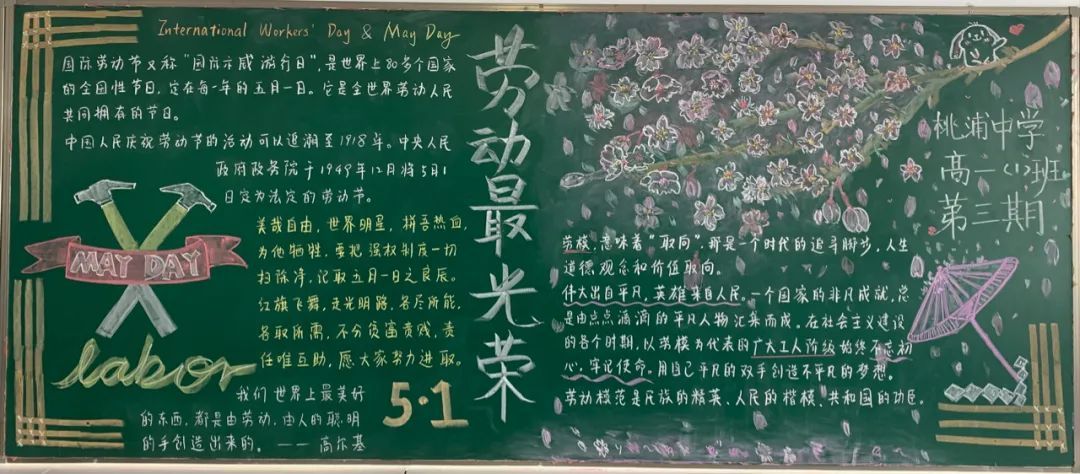 International Workers' Day & May Day
国际劳动节又称“国际示威游行日”,是世界上80多个国家
的全国性节日。定在每一年的五月一日。它是全世界劳动人民
共同拥有的节日。
中国人民庆祝劳动节的活动可以追溯至1918年。中央人民
政府政务院于1949年12月将5月1
日定为法定的劳动节。
美哉自由,世界明星,拼吾热血,
为他牺牲,要把强权制度一切
扫除净,记取五月一日之良辰。
红旗飞舞,走光明路,各尽所能,
各取所需,不分贫富贵贱,责
任唯互助,愿大家努力进取。
MAY DAY
labor
我们世界上最美好
的东西,都是由劳动、由人的聪明
的手创造出来的。——高尔基
5·1
劳动最光荣
桃浦中学
高一(1)班
第三期
劳模,意味着“取向”,那是一个时代的追寻脚步,人生
道德观念和价值取向。
伟大出自平凡,英雄来自人民。一个国家的非凡成就,总
是由点点滴滴的平凡人物汇集而成。在社会主义建设
的各个时期,以劳模为代表的广大工人阶级始终不忘初
心、牢记使命。用自己平凡的双手创造不平凡的梦想。
劳动模范是民族的精英、人民的楷模、共和国的功臣。